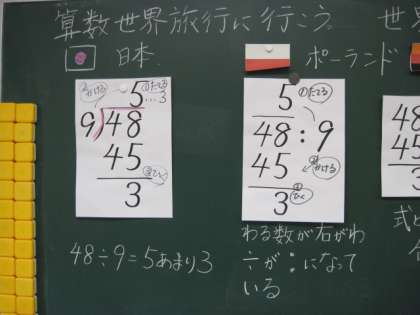 算数世界旅行に行こう。
世
日本
ポーランド
②かける
5
①たてる
…3
9)48
45
③ひく
3
5
①たてる
48:9
②かける
45
③ひく
3
48
45
3
48÷9=5あまり3
わる数が右がわ
÷が:になって
いる
式と